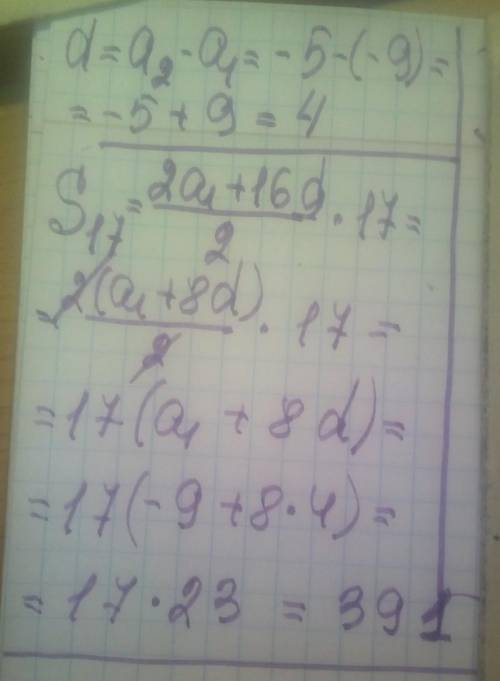 d = a₂ - a₁ = -5 - (-9) =
= -5 + 9 = 4
S₁₇ = (2a₁ + 16d)/2 · 17 =
= 2(a₁ + 8d)/2 · 17 =
= 17(a₁ + 8d) =
= 17(-9 + 8 · 4) =
= 17 · 23 = 391